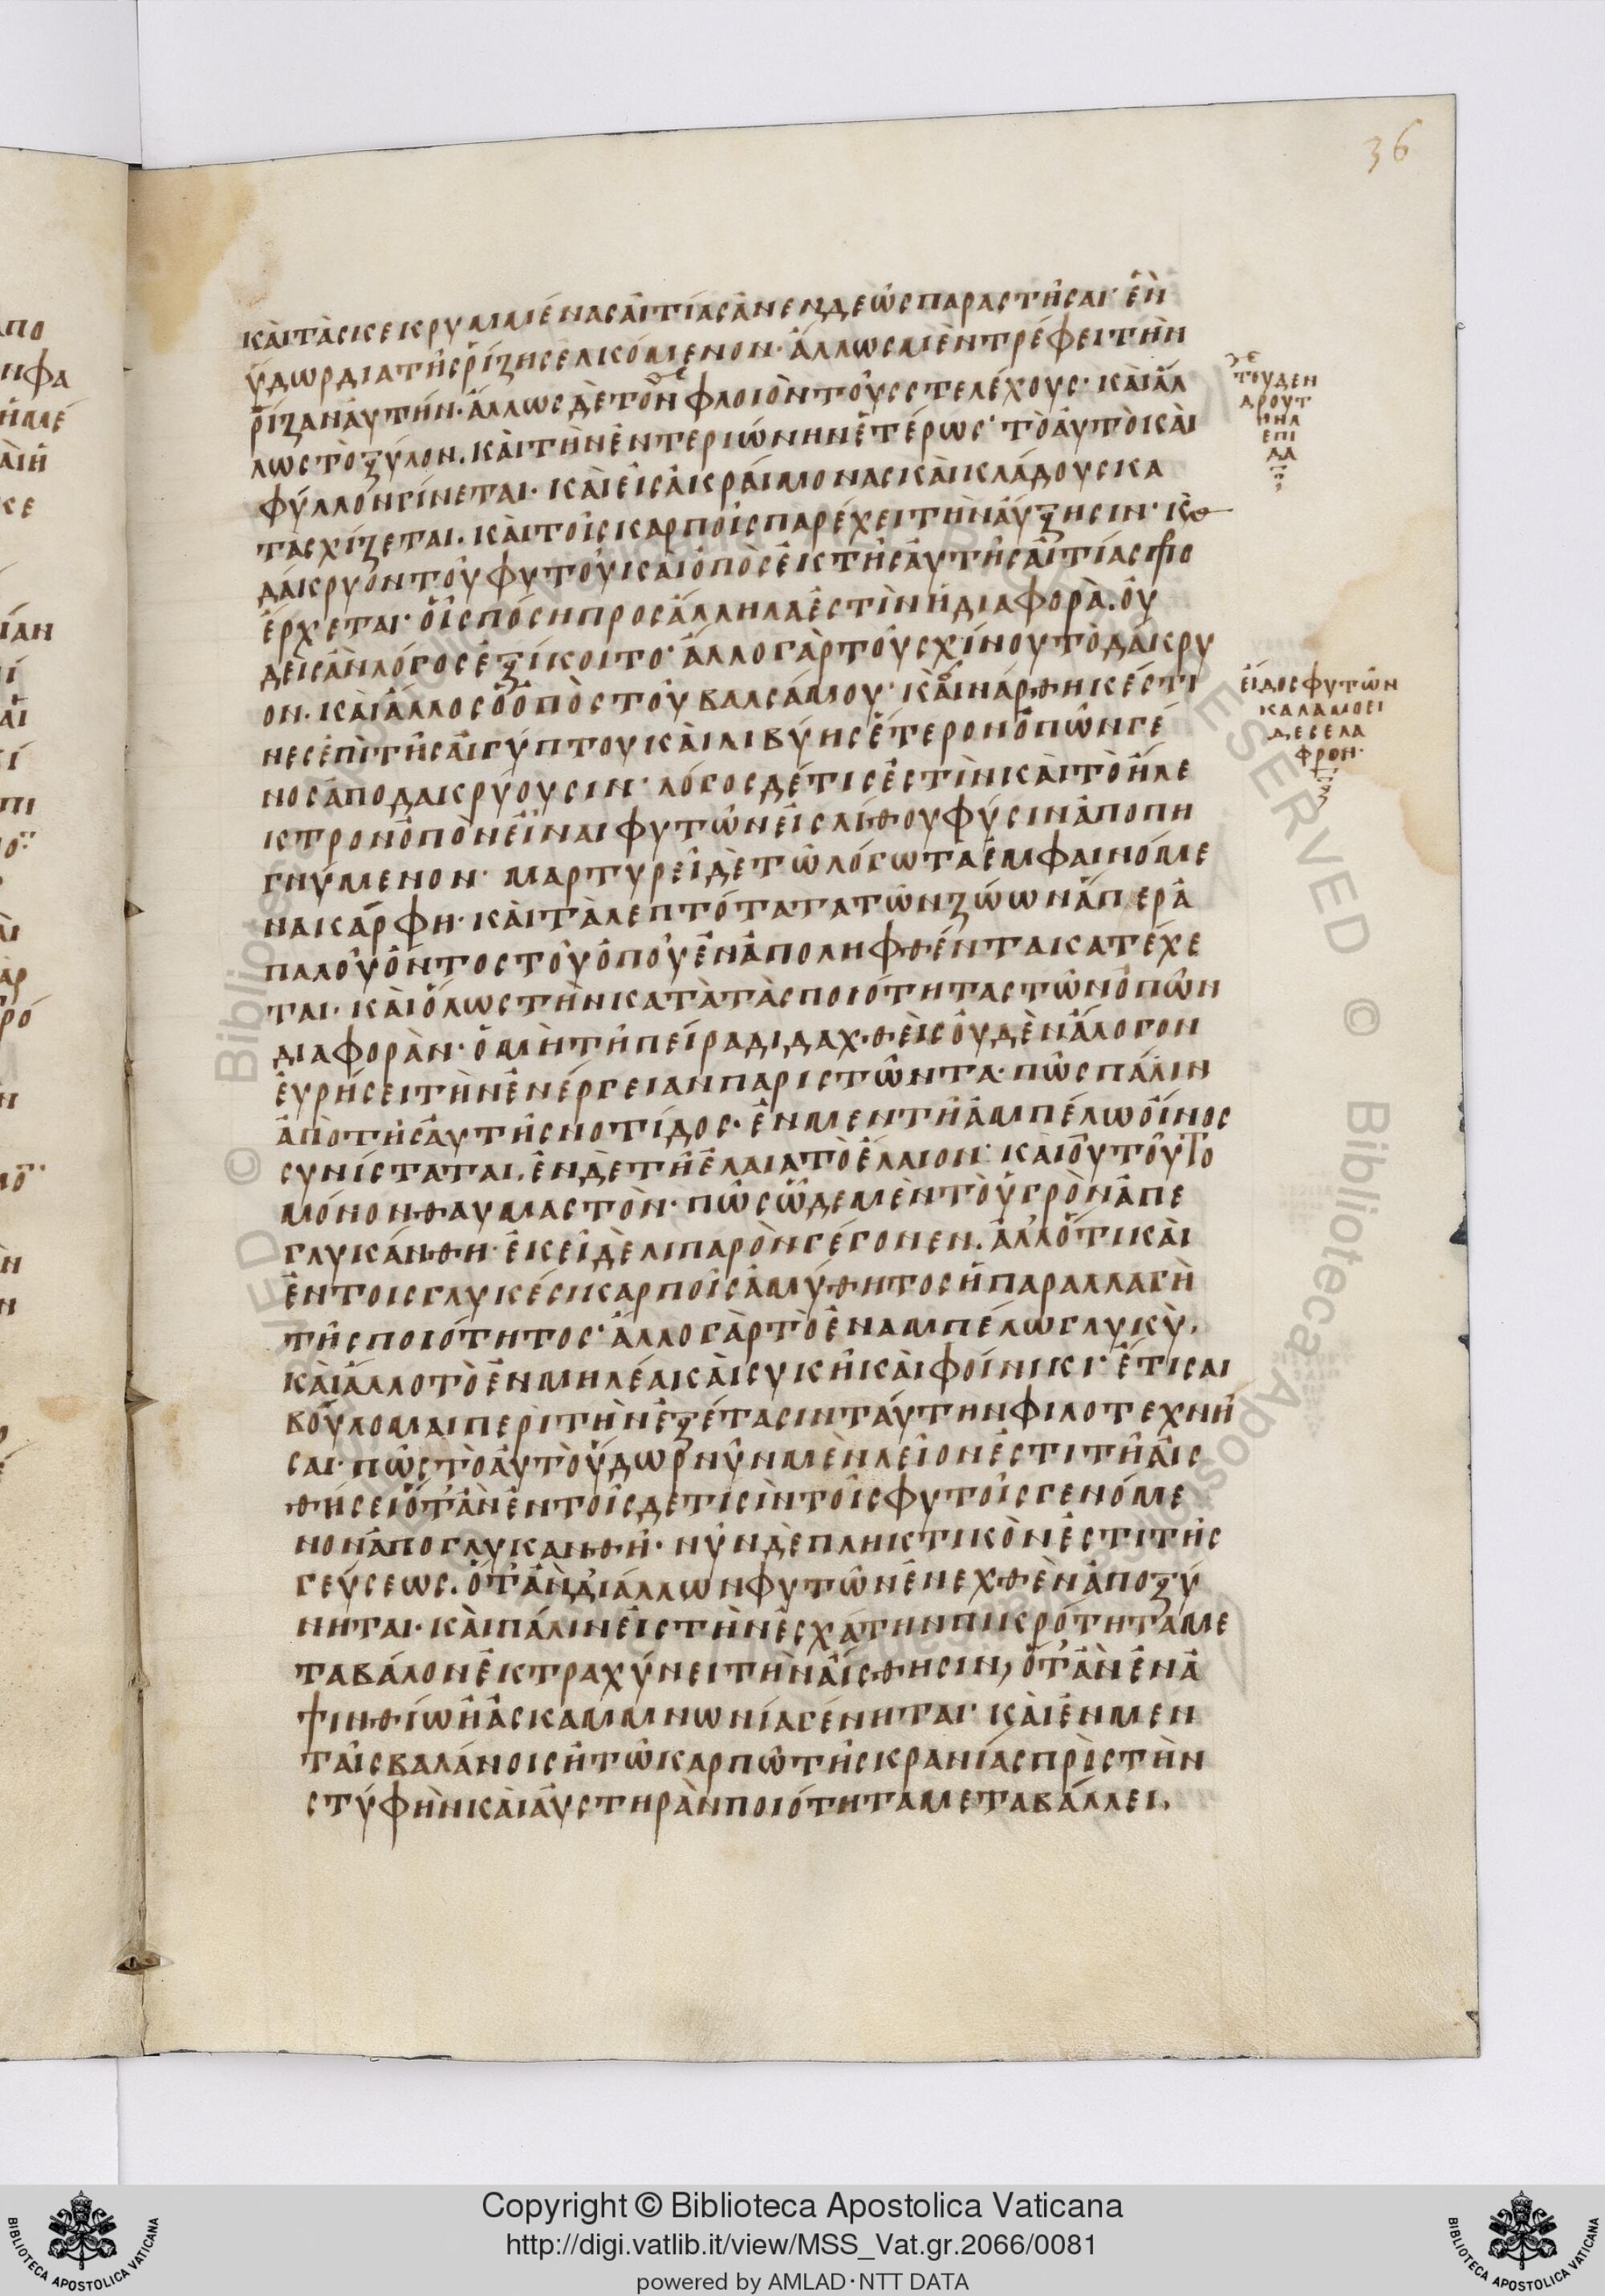 36
καὶ τὰς κεκρυμμένας αἰτίας ἀνενδεῶς παραστῆσαι· ἓν
ὕδωρ διατῆς ρίζης ἑλκόμενον· ἄλλως μὲν τρέφει τὴν
ρίζαν αὐτήν· ἄλλως δὲ τὸν φλοιὸν τοῦ στελέχους· καὶ ἄλ
λως τὸ ξύλον. καὶ τὴν ἐντεριώνην ἑτέρως· τὸ αὐτὸ καὶ
φύλλον γίνεται· καὶ εἰς ἀκραίμονας καὶ κλάδους κα
τασχίζεται. καὶ τοῖς καρποῖς παρέχει τὴν αὔξησιν· κ
δάκρυον τοῦ φυτοῦ καὶ ὁ ὀπὸς ἐκ τῆς αὐτῆς αἰτίας προ
έρχεται· οἷς πόση προς ἄλληλα ἐστὶν ἡ διαφορὰ. οὐ
δεὶς ἂν λόγος ἐξίκοιτο· ἄλλο γὰρ τοῦ σχίνου τὸ δάκρυ
ον. καὶ ἄλλος ὁ ὀπὸς τοῦ βαλσάμου· καὶ νάρθηκές τι
νες ἐπὶ γῆς αἰγύπτου καὶ λιβύης ἕτερον ὀπῶν γέ
νος ἀποδακρύουσιν· λόγος δέ τις ἐστὶν καὶ τὸ ἤλε
κτρον ὀπὸν εἶναι φυτῶν εἰς λίθου φύσιν ἀποπη
γνύμενον· μαρτυρεῖ δὲ τῶ λόγω τα ἐμφαινόμε
να κάρφη· καὶ τὰ λεπτότατα τῶν ζώων ἅπερ ἁ
παλοῦ ὄντος τοῦ ὀποῦ ἐναποληφθέντα κατέχε
ται· καὶ ὅλως τὴν κατὰ τὰς ποιότητας τῶν ὀπῶν
διαφορὰν· ὁ μὴ τῆ πείρα διδαχθεὶς οὐδὲν ἄλογον
εὑρήσει τὴν ἐνέργειαν παριστῶντα· πῶς πάλιν
ἀπὸ τῆς αὐτῆς νοτίδος· ἐν μεν τῆ ἀμπέλω οἶνος
συνίσταται. ἐν δὲ τῆ ἐλαία τὸ ἔλαιον· καὶ οὐ τοῦτο
μόνον θαυμαστὸν· πῶς ὧδε μὲν τὸ ὑγρὸν ἀπε
γλυκάνθη· ἐκεῖ δὲ λιπαρὸν γέγονεν. ἀλλ' ὅτι καὶ
ἐν τοις γλυκέσι καρποῖς ἀμύθητος ἡ παραλλαγὴ
τῆς ποιότητος· ἄλλο γὰρ τὸ ἐν αμπέλω γλυκὺ.
καὶ ἄλλο τὸ ἐν μηλέα καὶ συκῆ καὶ φοίνικι· ἔτι σαι
βούλομαι περὶ τὴν ἐξέτασιν ταύτην φιλοτεχνῆ
σαι· πῶς τὸ αὐτὸ ὕδωρ νῦν μὲν λεῖον ἐστι τῆ αἰσ
θήσει ὅτ' ἂν ἐν τοῖσδε τισὶν τοῖς φυτοῖς γενόμε
νον ἀπογλυκανθῆ· νῦν δὲ πληκτικὸν ἐστι τῆς
γεύσεως. ὅτ' ἂν δι' άλλων φυτῶν ἐνεχθὲν ἀποξύ
νηται· καὶ πάλιν εἰς τὴν ἐσχάτην πικρότητα με
ταβάλον ἐκτραχύνει τὴν αἴσθησιν, ὅτ' ἂν ἐν ἀ
ψινθίω ἢ ἀσκαμμνωνία γένηται· καὶ ἐν μεν
ταῖς βαλάνοις ἢ τῶ καρπῶ τῆς κρανίας πρὸς τὴν
στύφην καὶ αὐστηρὰν ποιότητα μεταβάλλει.
τουδεν
δρουτ
ηνλ
επι
δα
εἶδος φυτῶν
καλαμοει
δες ελα
φρον·
Copyright © Biblioteca Apostolica Vaticana
http://digi.vatlib.it/view/MSS_Vat.gr.2066/0081
powered by AMLAD·NTT DATA